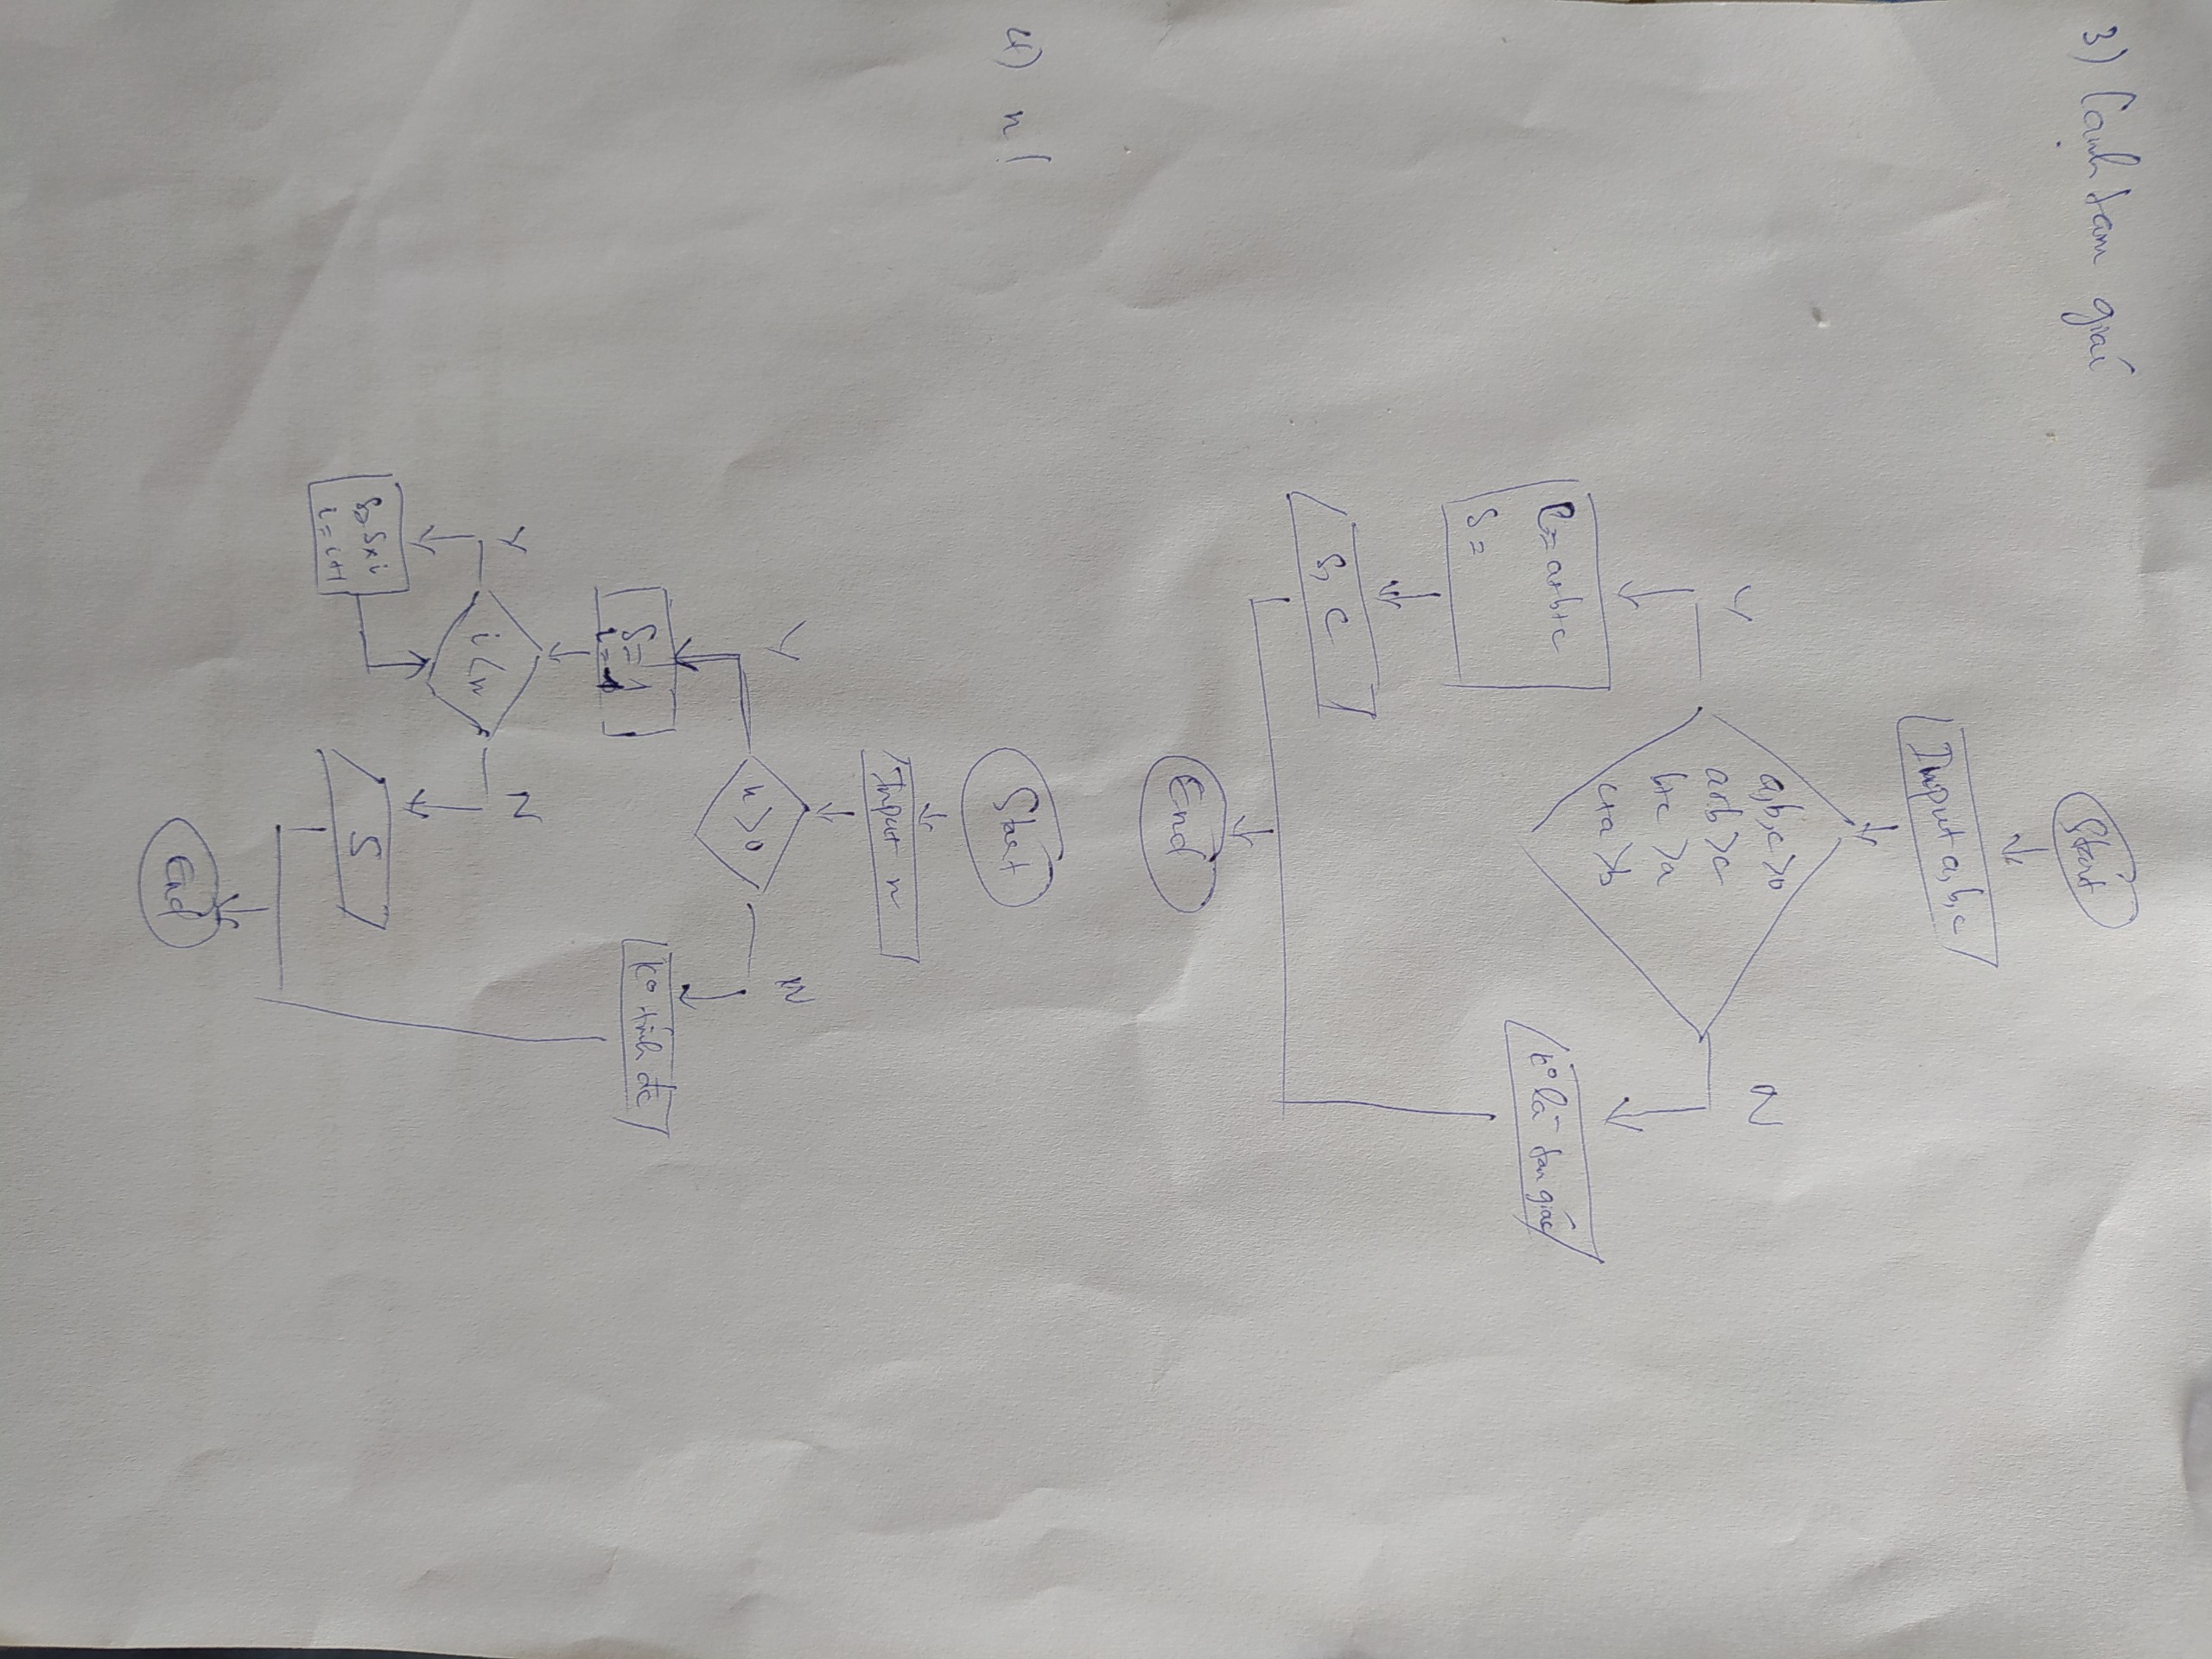 3) Cạnh tam giác
Start
Input a,b,c
a,b,c >0
a+b >c
b+c >a
c+a >b
Y
N
C= a+b+c
S =
k° là tam giác
S, C
End
4) n!
Start
Input n
n>0
Y
N
S=1
k° tính đc
i<n
Y
N
S=S×i
i=i+1
S
End